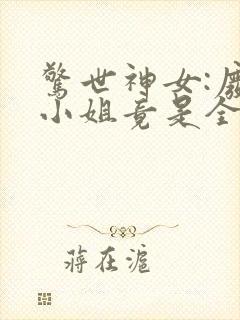 驚世神女:廢
小姐竟是全
蔣在滬